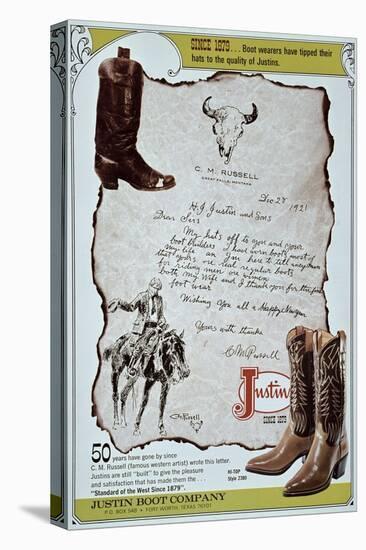 SINCE 1879... Boot wearers have tipped their
hats to the quality of Justins.
C. M. RUSSELL
GREAT FALLS, MONTANA
Dec 28 1921
H.J. Justin and Sons
Dear Sirs
My hat's off to you and your
boot builders I have worn boots most of
my life an
both my Wife and I thank you for the
foot wear
Wishing You all a Happy New year
Yours with thanks
C M Russell
CM Russell
Justin
SINCE 1879
50 years have gone by since
C. M. Russell (famous western artist) wrote this letter.
Justins are still "built" to give the pleasure
and satisfaction that has made them the...
"Standard of the West Since 1879".
HI-TOP
Style 2380
JUSTIN BOOT COMPANY
P.O. BOX 548 • FORT WORTH, TEXAS 76101